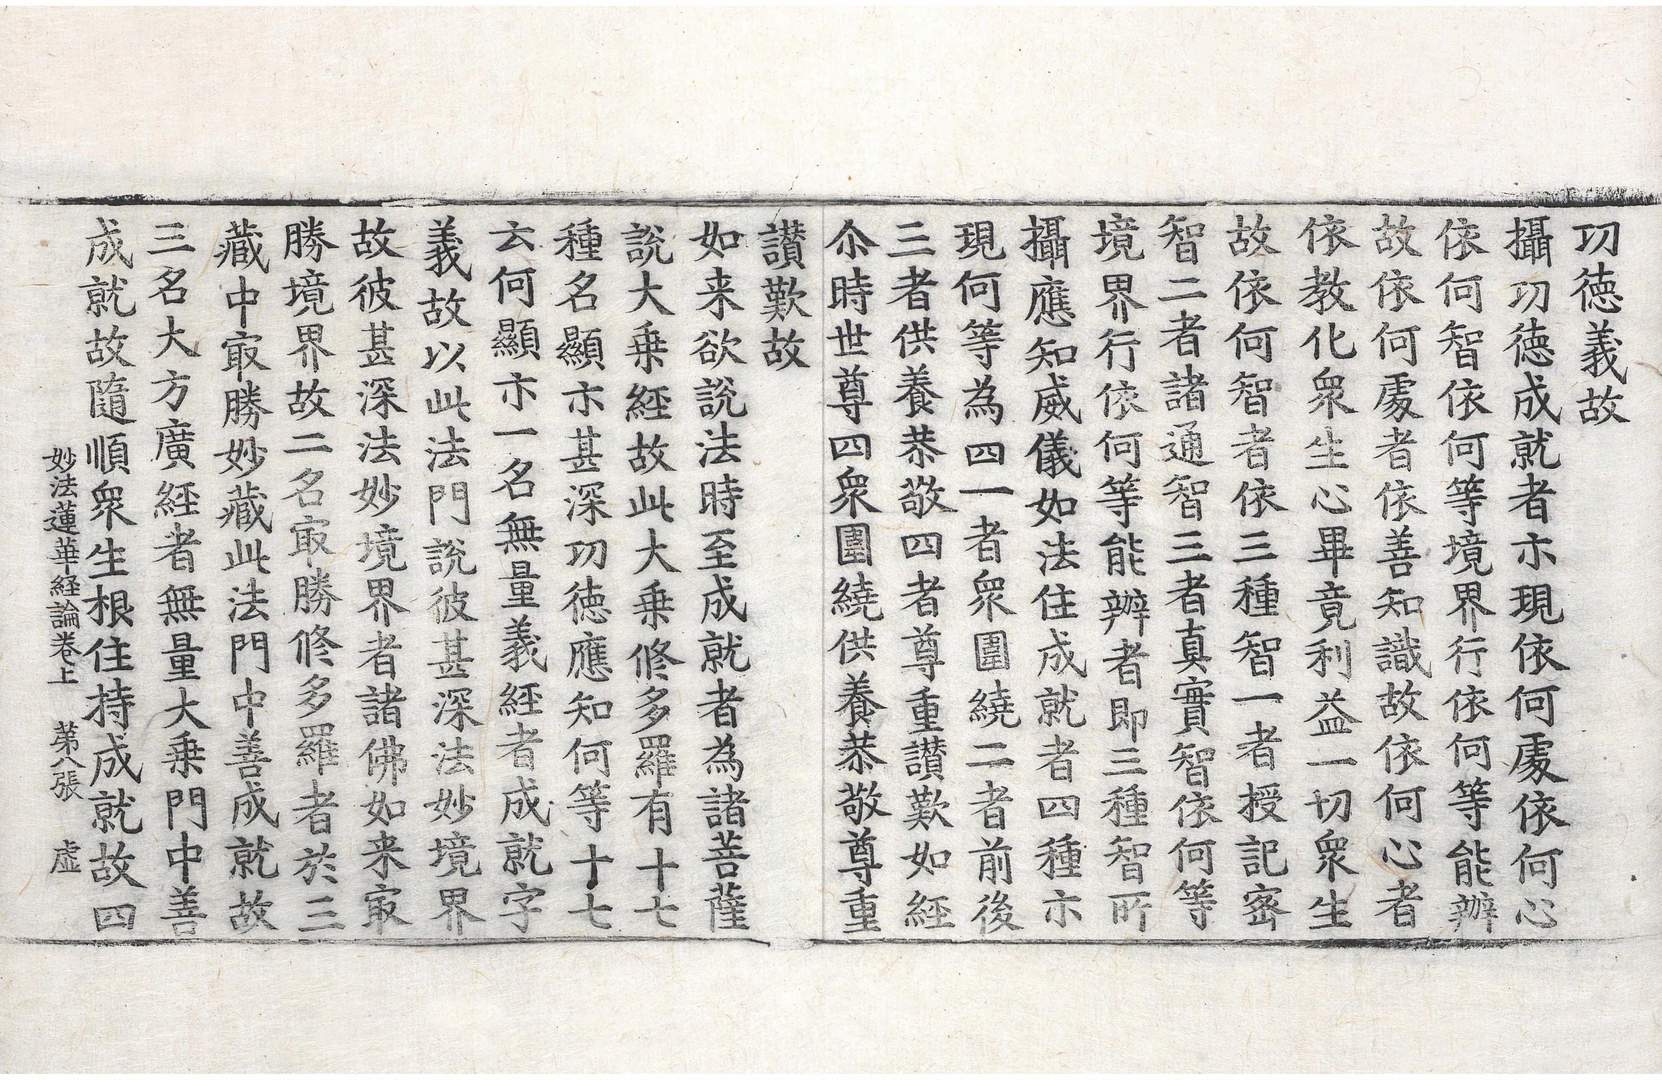 功德義故
攝功德成就者示現依何處依何心
依何智依何等境界行依何等能辦
故依何處者依善知識故依何心者
依教化衆生心畢竟利益一切衆生
故依何智者依三種智一者授記密
智二者諸通智三者真實智依何等
境界行依何等能辦者即三種智所
攝應知威儀如法住成就者四種示
現何等為四一者衆圍繞二者前後
三者供養恭敬四者尊重讃歎如經
尒時世尊四衆圍繞供養恭敬尊重
讃歎故
如来欲說法時至成就者為諸菩薩
說大乗經故此大乗修多羅有十七
種名顯示甚深功德應知何等十七
云何顯示一名無量義經者成就字
義故以此法門說彼甚深法妙境界
故彼甚深法妙境界者諸佛如来㝡
勝境界故二名㝡勝修多羅者於三
藏中㝡勝妙藏此法門中善成就故
三名大方廣經者無量大乗門中善
成就故隨順衆生根住持成就故四
妙法蓮華経論卷上 第八張 虛